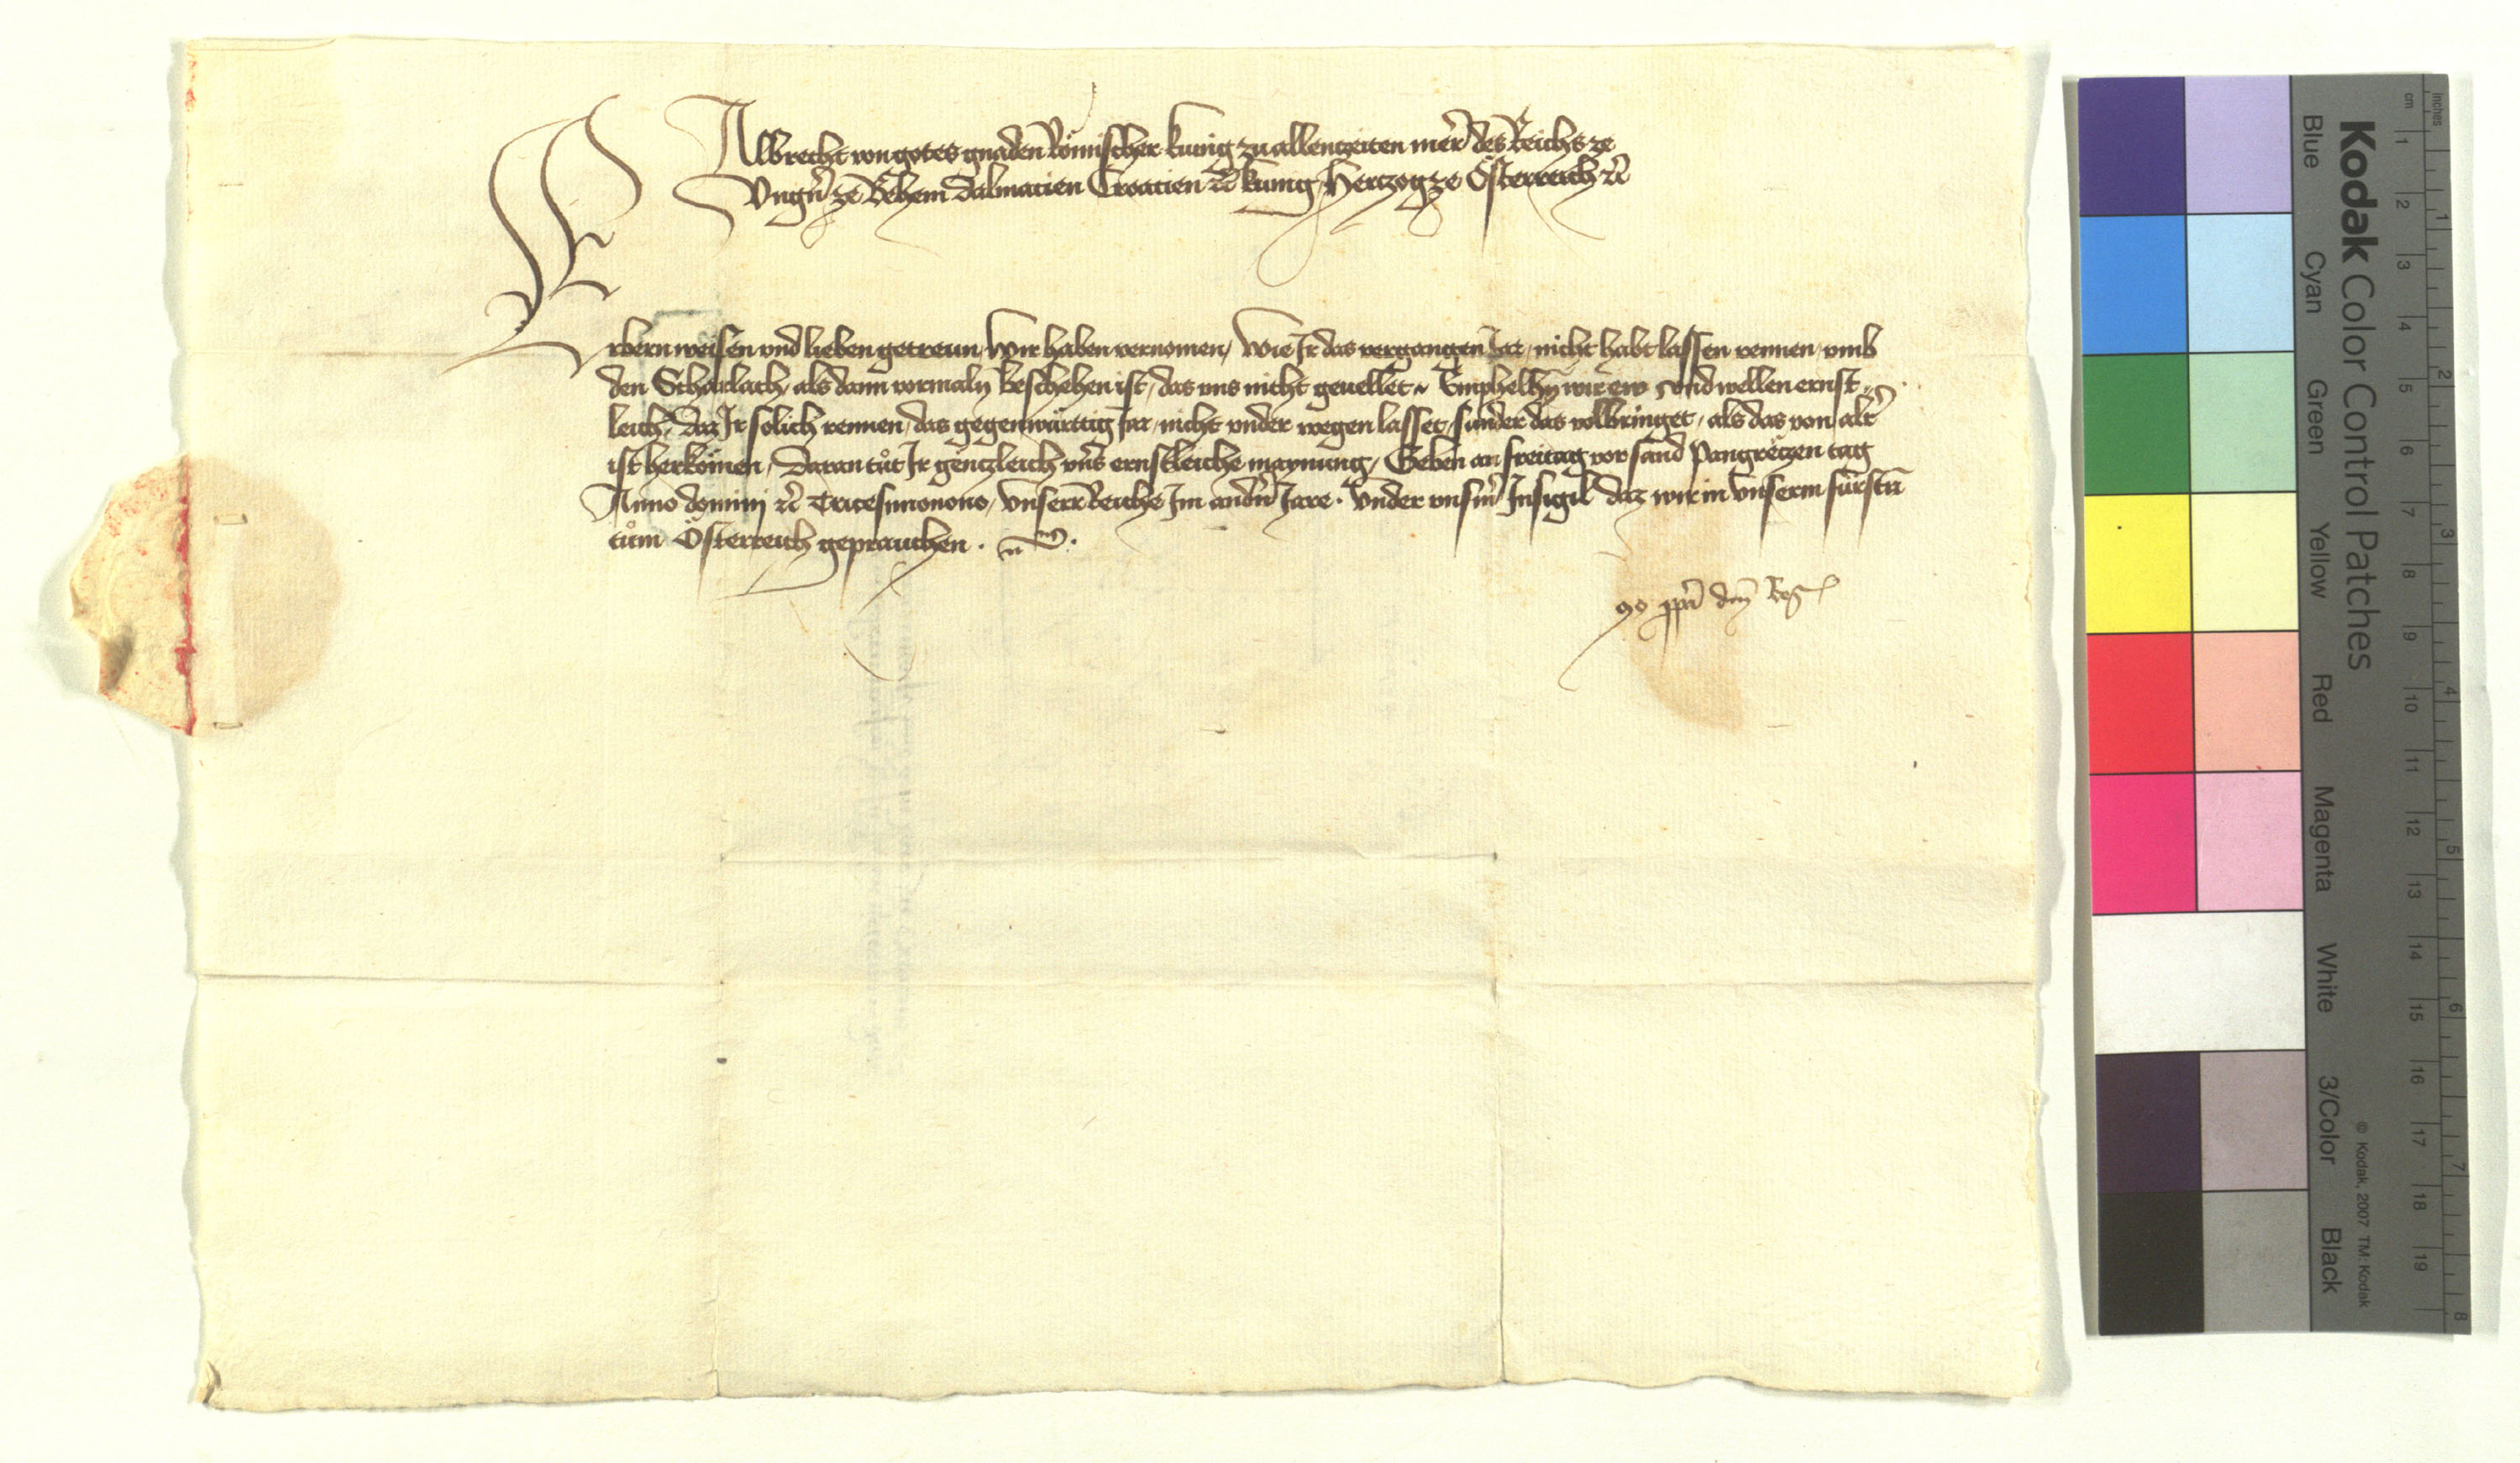 Albrecht von gotes gnaden Römischer kunig zu allenczeiten merer des Reichs ze
Ungern ze Behem Dalmatien Croatien etc kunig, Herczog ze Österreich etc
Erbern weisen vnd lieben getreun, Wir haben vernomen, Wie Ir das vergangen Jar, nicht habt lassen rennen, vmb
den Scharlach, als dann vormaln beschehen ist, das vns nicht geuellet, Emphelhn wir ew vnd wellen ernst-
leich, daz Ir solich rennen, das gegenwürttig Jar, nicht vnder wegen lasset, sunder das volbringet, als das von altr
ist herkömen, Daran tůt Ir genczleich vnsr ernstleiche maynung, Geben an freitag vor sand Pangreczen tag
Anno domini etc Tricesimonono, Vnserr Reiche Im andrn Jare. Vnder vnsrm Insigil daz wir in Vnserm fürstn
tům Österreich geprauchen.
Kodak Color Control Patches
Blue Cyan Green Yellow Red Magenta White 3/Color Black
© Kodak, 2007 TM: Kodak
cm 1 2 3 4 5 6 7 8 9 10 11 12 13 14 15 16 17 18 19
inches 1 2 3 4 5 6 7 8